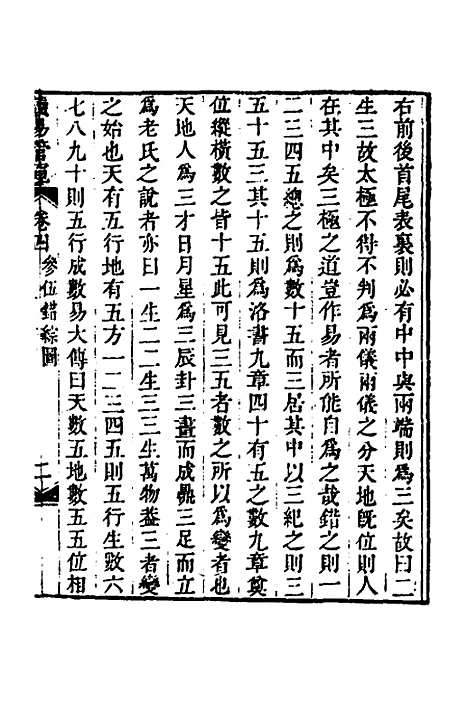 右前後首尾表裏則必有中中與兩端則爲三矣故曰二
生三故太極不得不判爲兩儀兩儀之分天地旣位則人
在其中矣三極之道豈作易者所能自爲之哉錯之則一
二三四五總之則爲數十五而三居其中以三紀之則三
五十五三其十五則爲洛書九章四十有五之數九章奠
位縱橫數之皆十五此可見三五者數之所以爲變者也
天地人爲三才日月星爲三辰卦三畫而成鼎三足而立
爲老氏之說者亦曰一生二二生三三生萬物蓋三者變
之始也天有五行地有五方一二三四五則五行生數六
七八九十則五行成數易大傳曰天數五地數五五位相
易 卷四 參伍錯綜圖